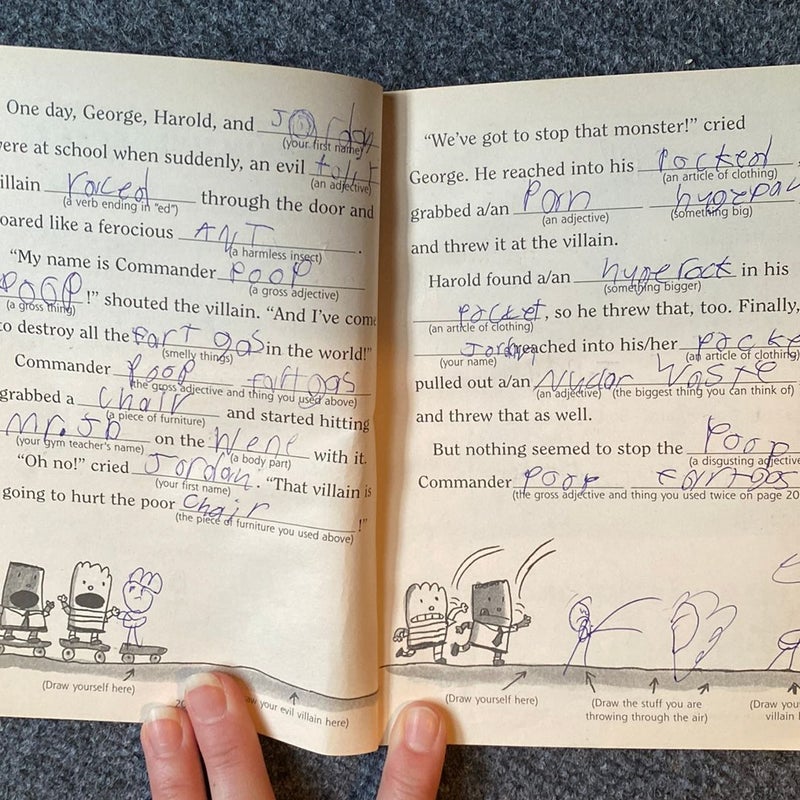 One day, George, Harold, and Jordan
(your first name)
ere at school when suddenly, an evil
(an adjective)
illain raced through the door and
(a verb ending in "ed")
oared like a ferocious ANT.
(a harmless insect)
"My name is Commander poop
(a gross adjective)
poop!" shouted the villain. "And I've come
(a gross thing)
to destroy all the fart gas in the world!"
(smelly things)
Commander poop fart gas
(the gross adjective and thing you used above)
grabbed a chair and started hitting
(a piece of furniture)
Mr. Jp on the with it.
(your gym teacher's name) (a body part)
"Oh no!" cried Jordan. "That villain is
(your first name)
going to hurt the poor chair!"
(the piece of furniture you used above)
(Draw yourself here)
20
aw your evil villain here)
"We've got to stop that monster!" cried
George. He reached into his pocked,
(an article of clothing)
grabbed a/an Porn
(an adjective) (something big)
and threw it at the villain.
Harold found a/an hyperock in his
(something bigger)
pocket, so he threw that, too. Finally,
(an article of clothing)
Jordan reached into his/her pocke
(your name) (an article of clothing)
pulled out a/an Nucar Waste
(an adjective) (the biggest thing you can think of)
and threw that as well.
But nothing seemed to stop the Poop
(a disgusting adjective
Commander poop fartgas
(the gross adjective and thing you used twice on page 20
(Draw yourself here)
(Draw the stuff you are
throwing through the air)
(Draw you
villain h